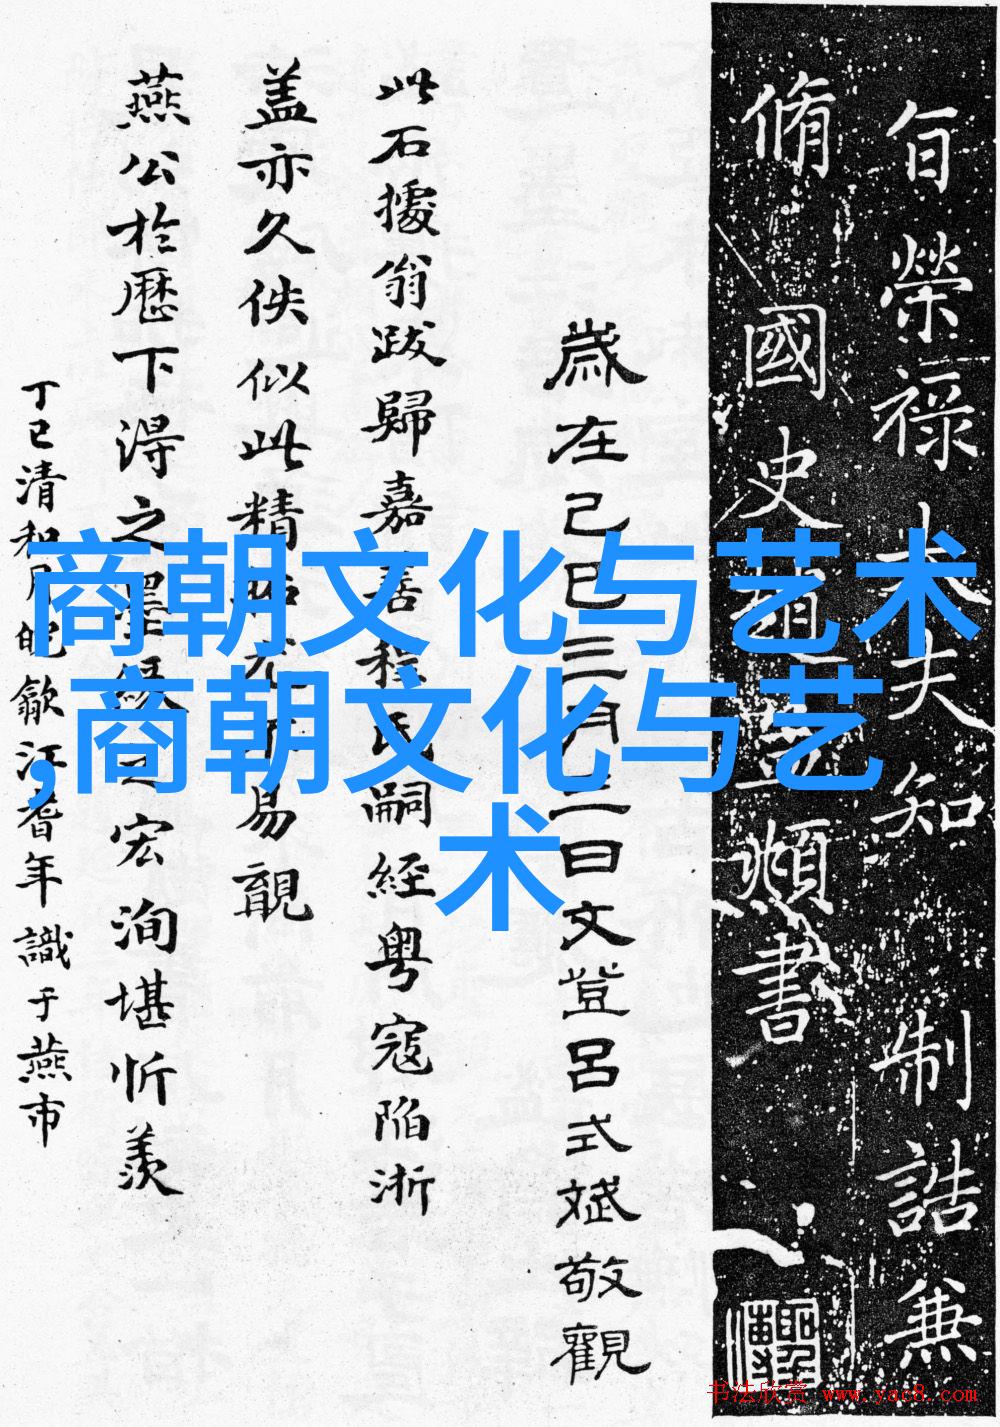 旨榮祿大夫知制誥兼
脩國史趙孟頫書
歲在己巳三月二日文登呂式斌敬觀
此石據翁跋歸嘉善程氏嗣經粵寇陷浙
盖亦久佚似此精拓尤不易覯
燕公於歷下得之墨緣之宏洵堪忻羨
丁巳清和月皖歙江耆年識于燕市
商朝文化与艺术
,商朝文化与艺
术
书法欣赏 www.yac8.com